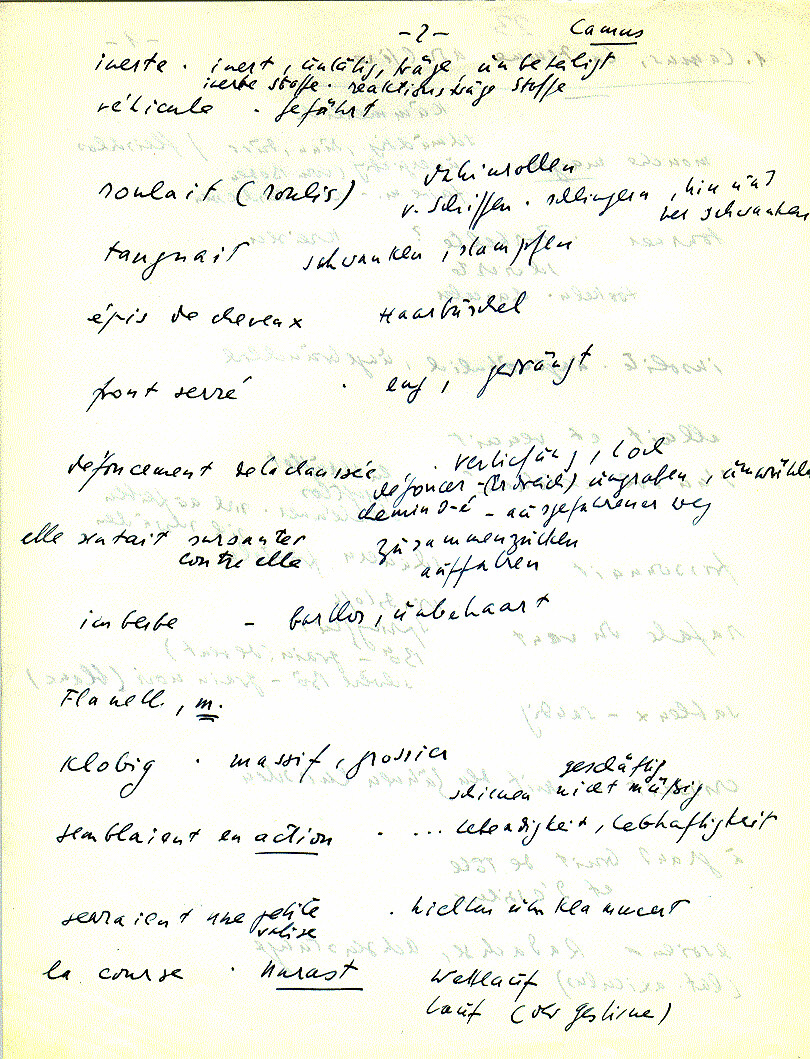 -2- Camus
inerte . inert, untätig, träge, unbetätigt
inerte Stoffe . reaktionsträge Stoffe
véhicule . gefährt
roulait (roulis) dahinrollen
v. Schiffen . schlingern, hin und
her schwanken
tanguait schwanken, stampfen
épis de cheveux Haarbüschel
front serré . eng, gedrängt
défoncement de la chaussée . Vertiefung, Loch
défoncer - (Erdreich) umgraben, umwühlen
chemin d-é - ausgefahrener Weg
elle sentait sursauter zusammenzucken
contre elle auffahren
imberbe - bartlos, unbehaart
Flanell, m.
klobig . massif, grossier
geschäftig
schienen nicht müßig
semblaient en action . ... Lebendigkeit, Lebhaftigkeit
serraient une petite . hielten umklammert
valise
la course . Wettlauf
Lauf (der Gestirne)